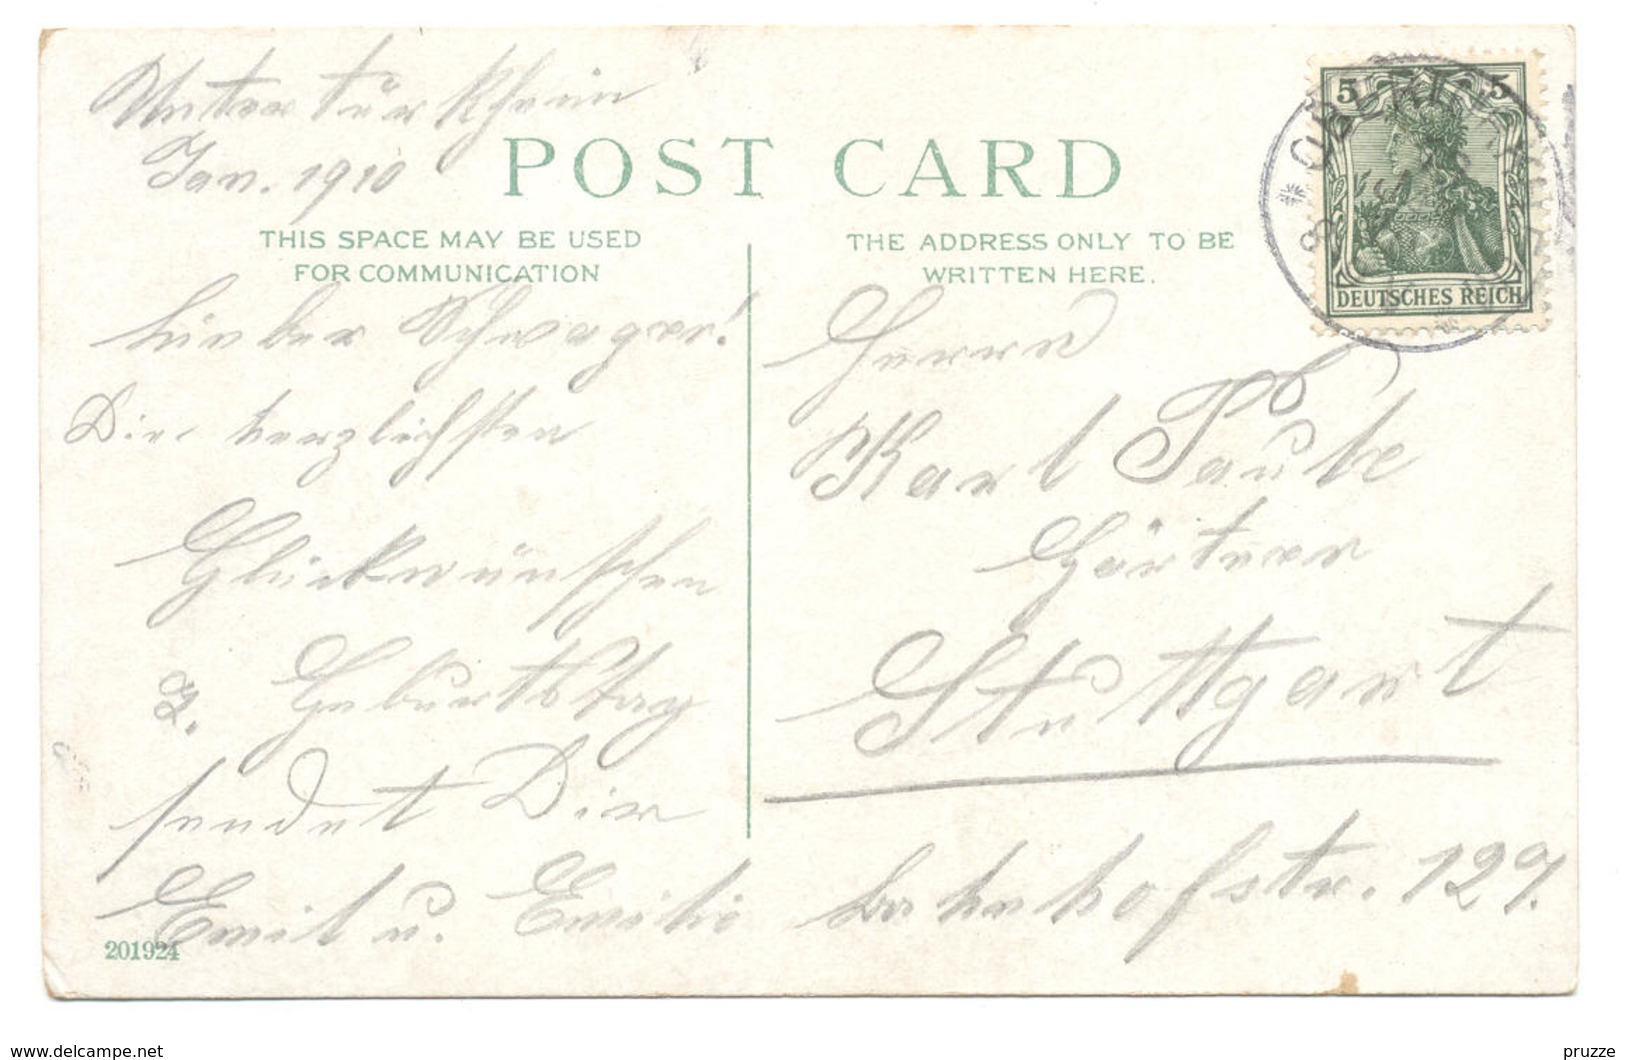 Untertürkheim
Jan. 1910
POST CARD
THIS SPACE MAY BE USED
FOR COMMUNICATION
THE ADDRESS ONLY TO BE
WRITTEN HERE.
5 5
DEUTSCHES REICH
Lieber Schwager!
Die herzlichsten
Glückwünschen
z. Geburtstag
sendet Dir
Emil u. Emilie
201924
Herrn
Karl Taube
Gärtner
Stuttgart
Bahnhofstr. 129.
www.delcampe.net
pruzze